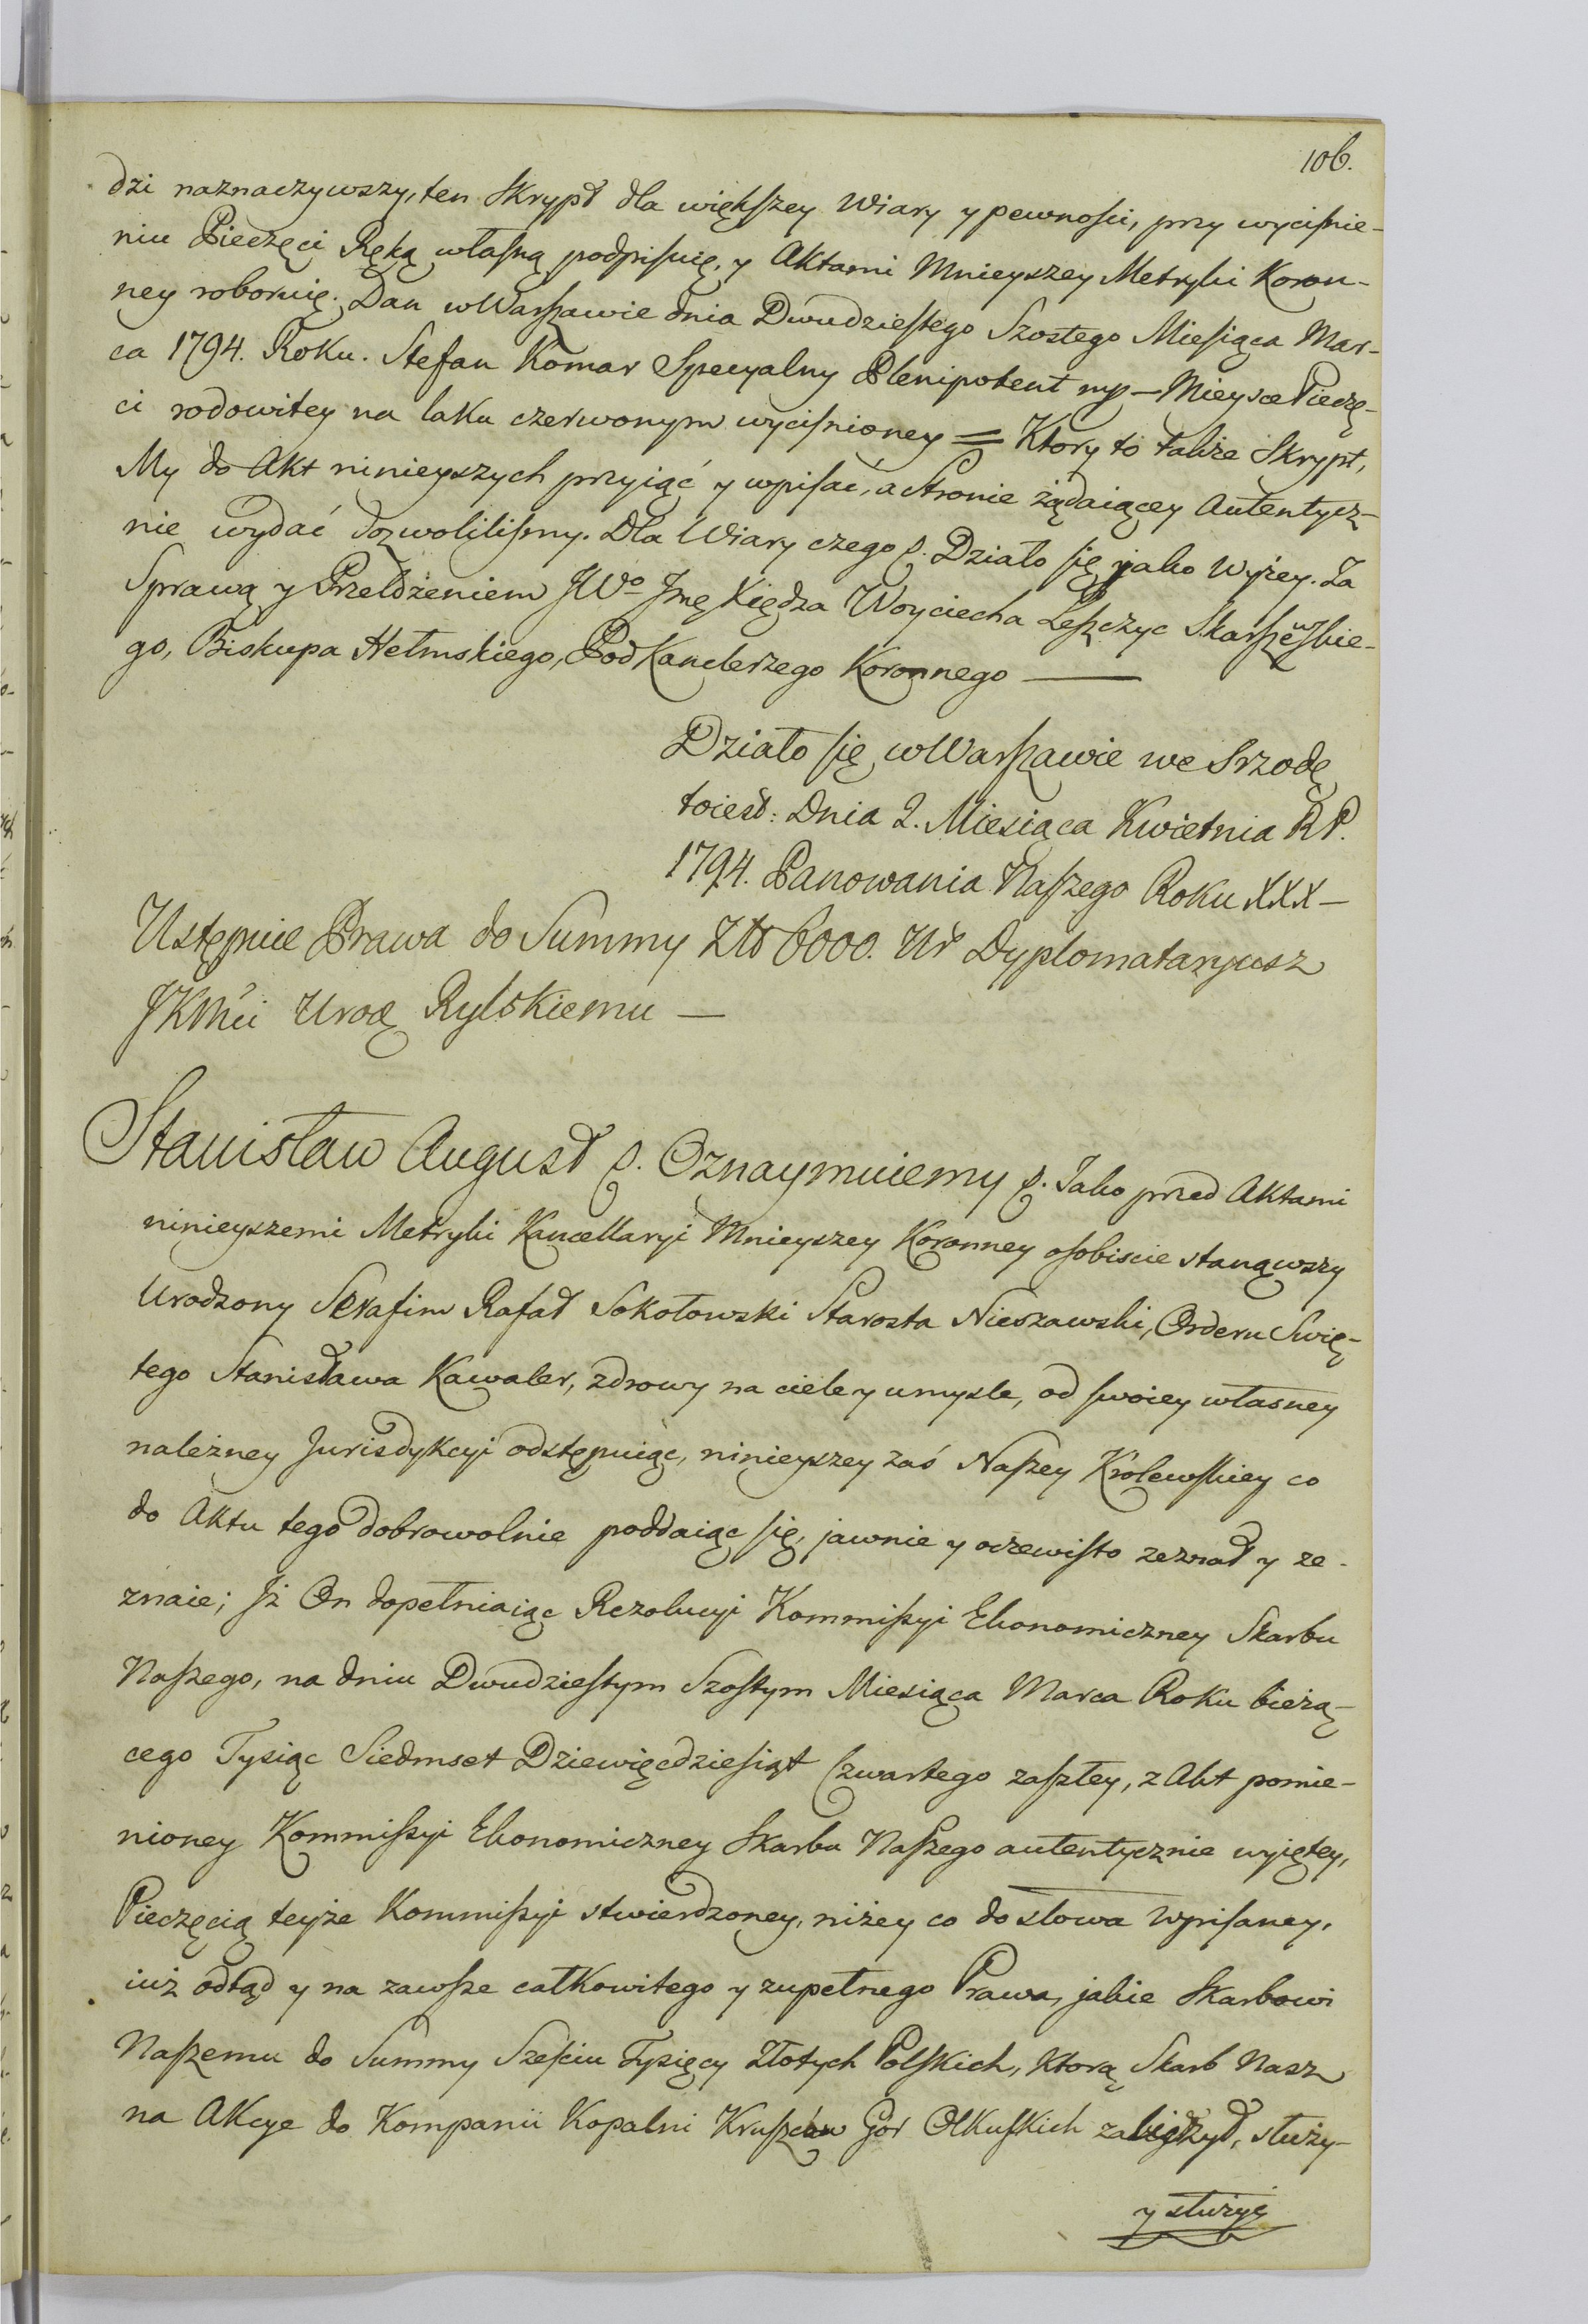 106.
dzi naznaczywszy, ten Skrypt dla większey Wiary y pewności, przy wyciśnie-
niu Pieczęci Ręką własną podpisuię, y Aktami Mnieyszey Metryki Koron-
ney roboruię. Dan w Warszawie dnia Dwudziestego Szostego Miesiąca Mar-
ca 1794. Roku. Stefan Komar Specyalny Plenipotent mp — Mieysce Pieczę-
ci rodowitey na laku czerwonym wyciśnioney = Ktory to także Skrypt,
My do Akt ninieyszych przyiąć y wpisać, a Stronie żądaiącey Autentycz-
nie wydać dozwoliliśmy. Dla Wiary czego p. Działo się jako wyżey. Za
Sprawą y Przełożeniem JWo Jmę Xiędza Woyciecha Leszczyc Skarszewskie-
go, Biskupa Hełmskiego, Pod Kanclerzego Koronnego —
Działo się w Warszawie we Srzodę
toiest: Dnia 2. Miesiąca Kwietnia RP.
1794. Panowania Naszego Roku XXX —
Ustępuie Prawa do Summy Złł 6000. Ur Dyplomataryusz
JKMci Urod Rylskiemu —
Stanisław August p. Oznaymuiemy p. Jako przed Aktami
ninieyszemi Metryki Kancellaryi Mnieyszey Koronney osobiscie stanąwszy
Urodzony Serafim Rafał Sokołowski Starosta Nieszawski, Orderu Swię-
tego Stanisława Kawaler, zdrowy na ciele y umysle, od swoiey własney
należney Jurisdykcyi odstępuiąc, ninieyszey zaś Naszey Krolewskiey co
do Aktu tego dobrowolnie poddaiąc się, jawnie y oczewisto zeznał y ze-
znaie; Jż On dopełniaiąc Rezolucyi Kommissyi Ekonomiczney Skarbu
Naszego, na dniu Dwudziestym Szostym Miesiąca Marca Roku bieżą-
cego Tysiąc Siedmset Dziewięcdziesiąt Czwartego zaszłey, z Akt pomie-
nioney Kommissyi Ekonomiczney Skarbu Naszego autentycznie wyiętey,
Pieczęcią teyże Kommissyi stwierdzoney, niżey co do słowa wpisaney,
iuż odtąd y na zawsze całkowitego y zupełnego Prawa, jakie Skarbowi
Naszemu do Summy Sześciu Tysięcy Złotych Polskich, Ktorą Skarb Nasz
na Akcye do Kompanii Kopalni Kruszców Gór Olkuskich zaliczył, służy-
y służyć